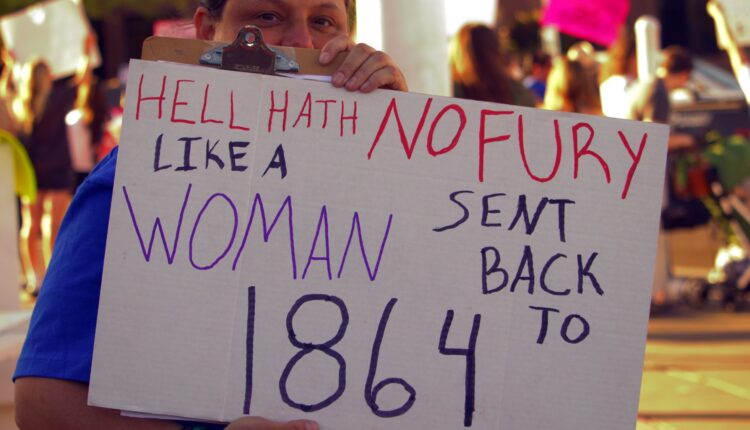 HELL HATH NO FURY
LIKE A
WOMAN
SENT
BACK
TO
1864